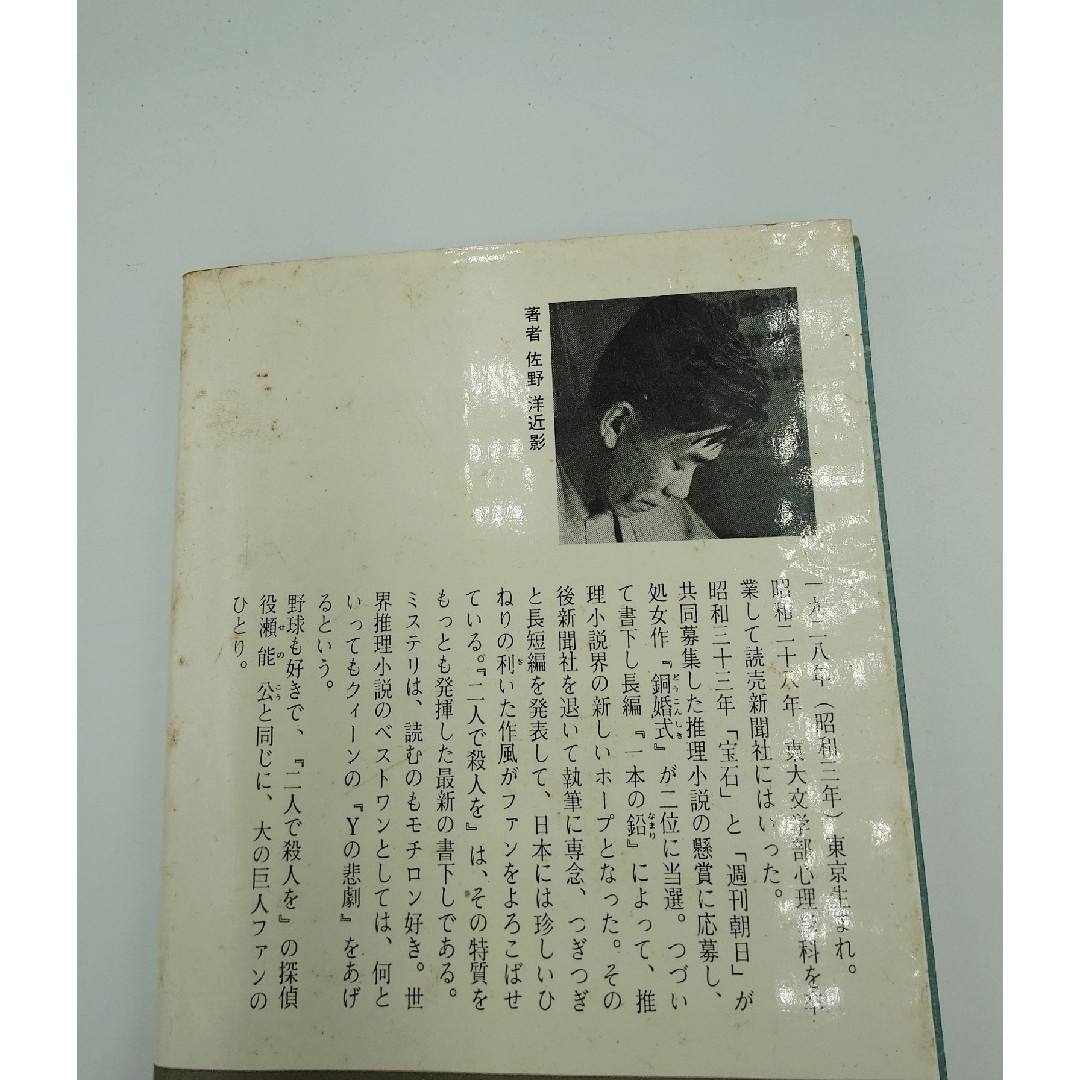 著者 佐野 洋近影
一九二八年（昭和三年）東京生まれ。
昭和二十八年 東大文学部心理学科を卒
業して読売新聞社にはいった。
昭和三十三年「宝石」と「週刊朝日」が
共同募集した推理小説の懸賞に応募し、
処女作『銅婚式』が二位に当選。つづい
て書下し長編『一本の鉛』によって、推
理小説界の新しいホープとなった。その
後新聞社を退いて執筆に専念、つぎつぎ
と長短編を発表して、日本には珍しいひ
ねりの利いた作風がファンをよろこばせ
ている。『二人で殺人を』は、その特質を
もっとも発揮した最新の書下しである。
ミステリは、読むのもモチロン好き。世
界推理小説のベストワンとしては、何と
いってもクィーンの『Yの悲劇』をあげ
るという。
野球も好きで、『二人で殺人を』の探偵
役瀬能公と同じに、大の巨人ファンの
ひとり。